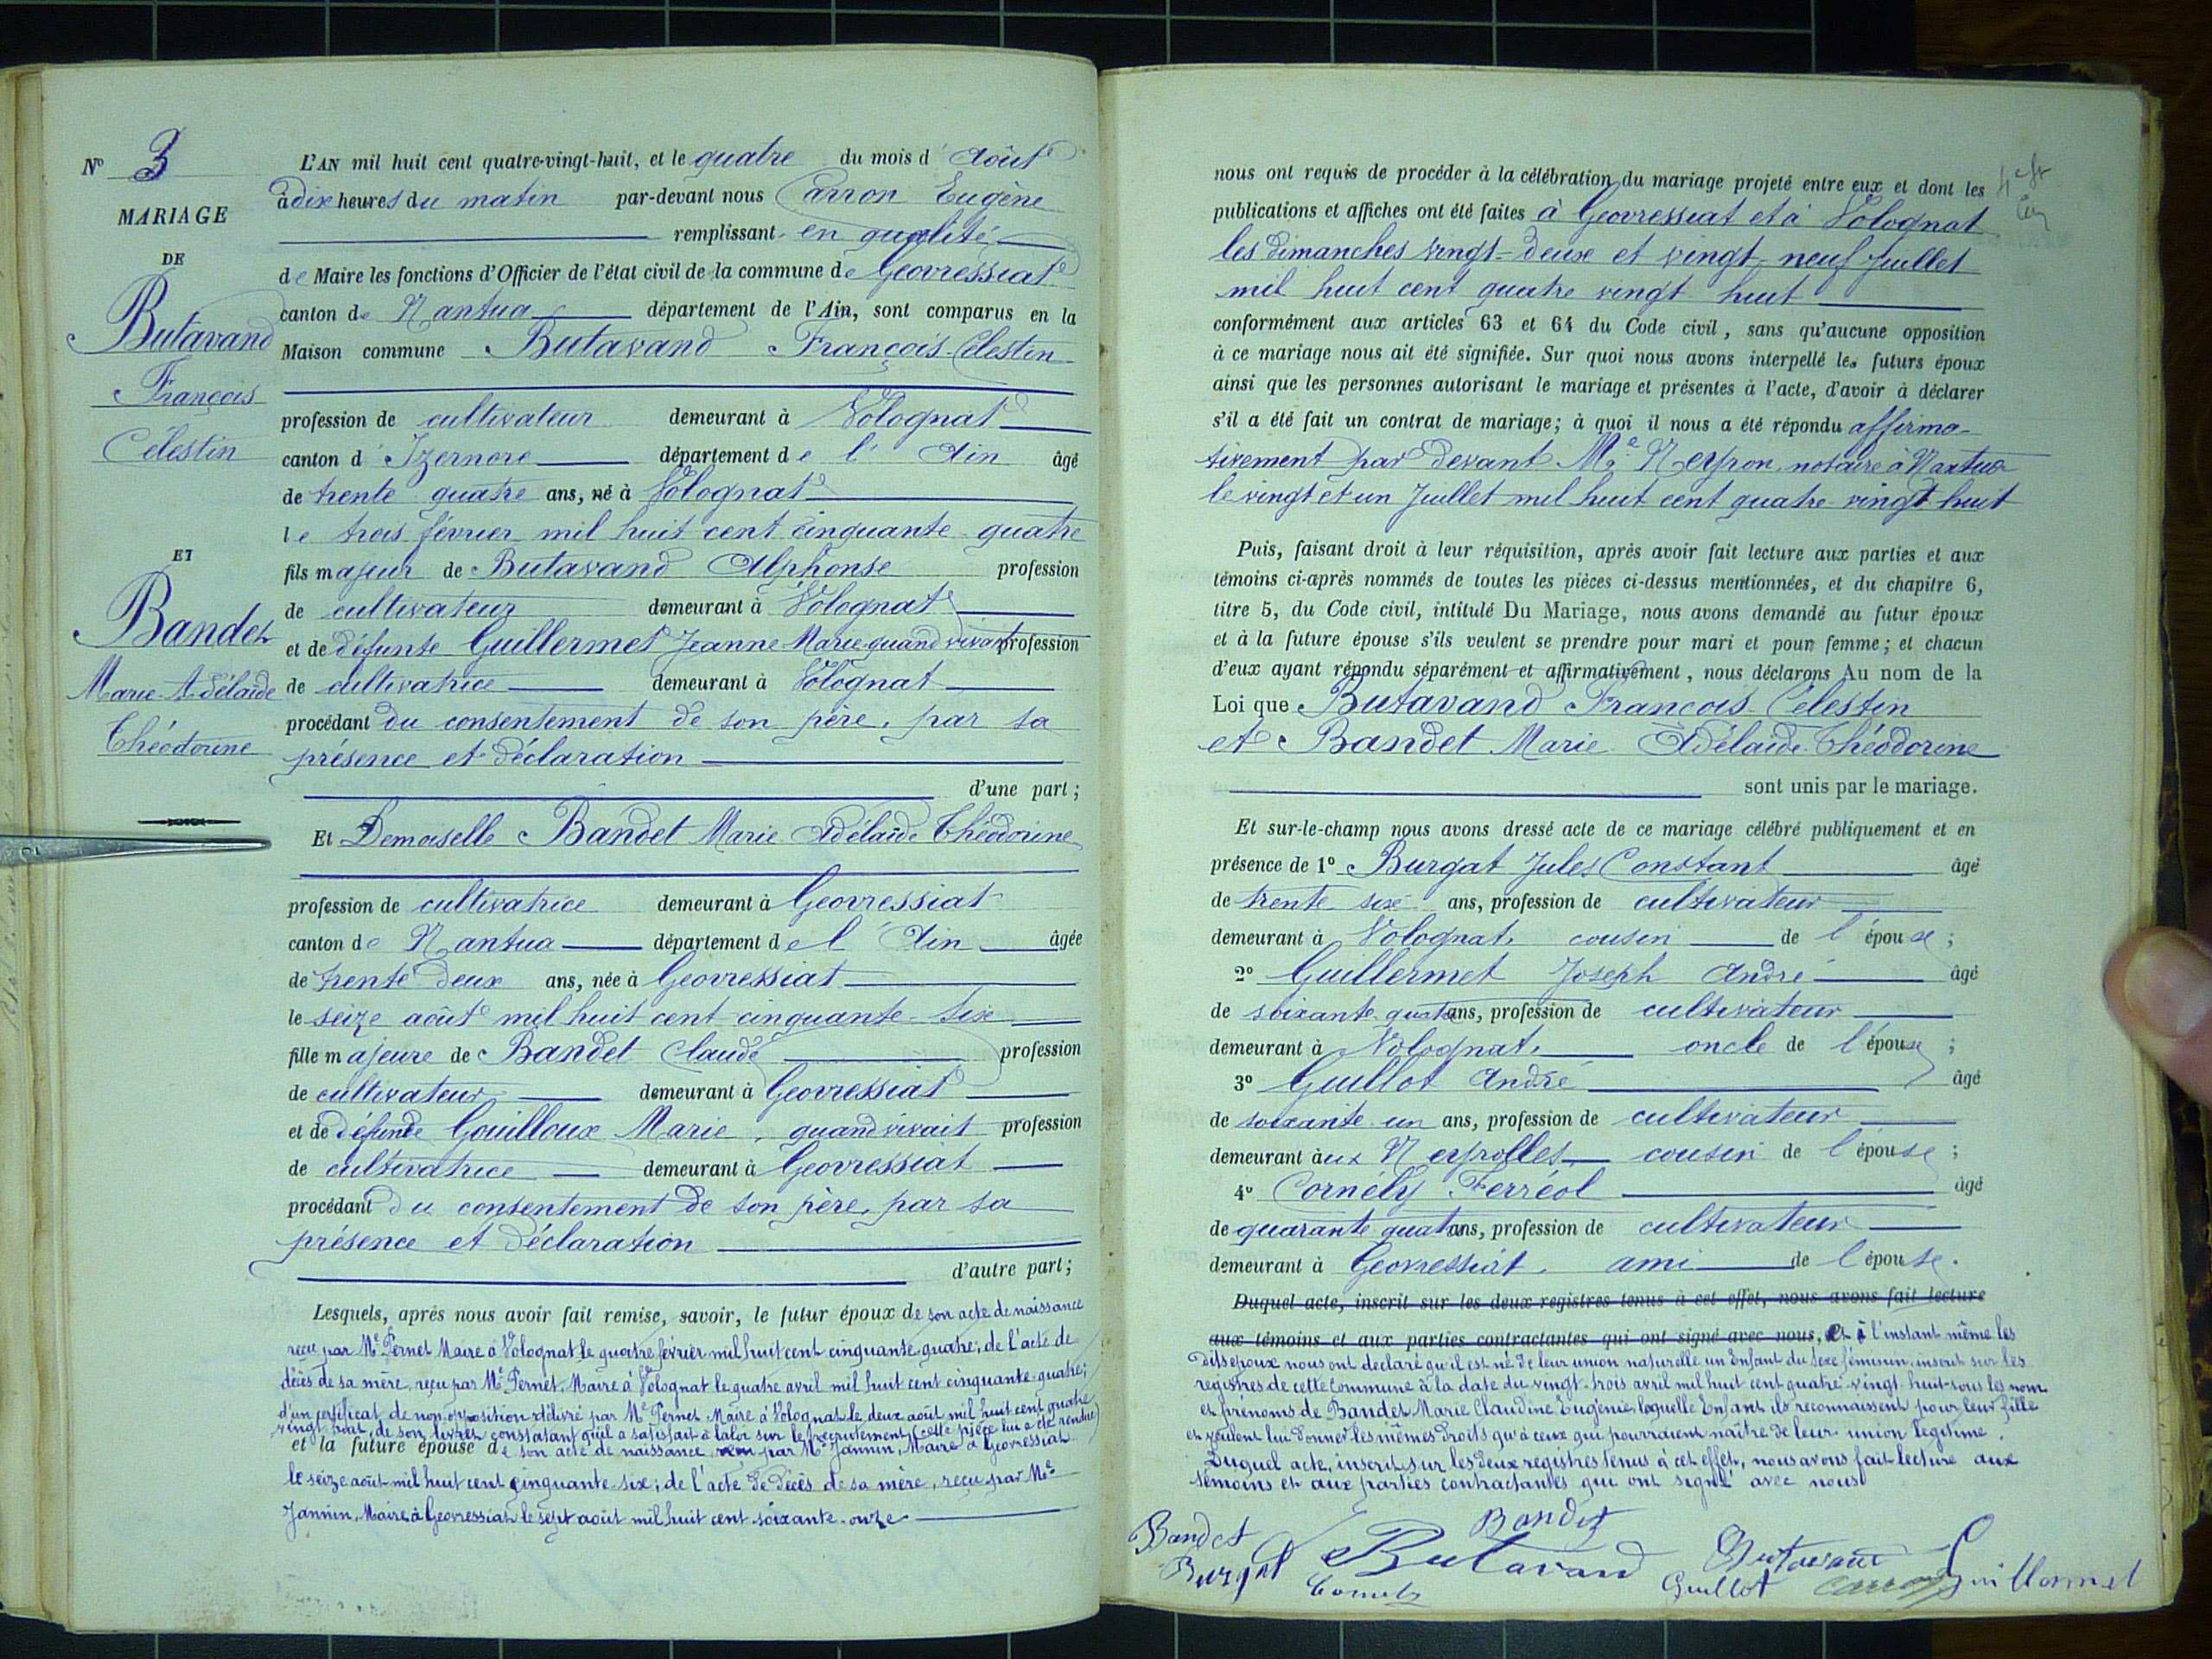 N° 3
MARIAGE
DE
Butavand
François
Célestin
ET
Bandet
Marie Adélaïde
Théodorine
L'AN mil huit cent quatre-vingt-huit, et le quatre du mois d'Août
à dix heures du matin par-devant nous Carron Eugène
remplissant en qualité
de Maire les fonctions d'Officier de l'état civil de la commune de Geovressiat
canton de Nantua département de l'Ain, sont comparus en la
Maison commune Butavand François Célestin
profession de cultivateur demeurant à Volognat
canton d'Izernore département de l'Ain âgé
de trente quatre ans, né à Volognat
le trois février mil huit cent cinquante quatre
fils majeur de Butavand Alphonse profession
de cultivateur demeurant à Volognat
et de défunte Guillermet Jeanne Marie quand vivait profession
de cultivatrice demeurant à Volognat
procédant du consentement de son père, par sa
présence et déclaration
d'une part;
Et Demoiselle Bandet Marie Adélaïde Théodorine
profession de cultivatrice demeurant à Geovressiat
canton de Nantua département de l'Ain âgée
de trente deux ans, née à Geovressiat
le seize août mil huit cent cinquante-six
fille majeure de Bandet Claude profession
de cultivateur demeurant à Geovressiat
et de défunte Gouilloux Marie, quand vivait profession
de cultivatrice demeurant à Geovressiat
procédant du consentement de son père, par sa
présence et déclaration
d'autre part;
Lesquels, après nous avoir fait remise, savoir, le futur époux de son acte de naissance
reçu par Me Pernet Maire à Volognat le quatre février mil huit cent cinquante quatre; de l'acte de
décès de sa mère, reçu par Me Pernet, Maire à Volognat le quatre avril mil huit cent cinquante-quatre;
d'un certificat de non opposition délivré par Me Pernet Maire à Volognat le deux août mil huit cent quatre
vingt huit, de son livret constatant qu'il a satisfait à la loi sur le recrutement (cette pièce lui a été rendue)
et la future épouse de son acte de naissance, reçu par Me Jannin, Maire à Geovressiat
le seize août mil huit cent cinquante-six; de l'acte de décès de sa mère, reçu par Me
Jannin, Maire à Geovressiat le sept août mil huit cent soixante-onze
nous ont requis de procéder à la célébration du mariage projeté entre eux et dont les
publications et affiches ont été faites à Geovressiat et à Volognat
les dimanches vingt-deux et vingt-neuf Juillet
mil huit cent quatre vingt huit
conformément aux articles 63 et 64 du Code civil, sans qu'aucune opposition
à ce mariage nous ait été signifiée. Sur quoi nous avons interpellé les futurs époux
ainsi que les personnes autorisant le mariage et présentes à l'acte, d'avoir à déclarer
s'il a été fait un contrat de mariage; à quoi il nous a été répondu affirma-
tivement par devant Me Neyron notaire à Nantua
le vingt et un Juillet mil huit cent quatre vingt huit
Puis, faisant droit à leur réquisition, après avoir fait lecture aux parties et aux
témoins ci-après nommés de toutes les pièces ci-dessus mentionnées, et du chapitre 6,
titre 5, du Code civil, intitulé Du Mariage, nous avons demandé au futur époux
et à la future épouse s'ils veulent se prendre pour mari et pour femme; et chacun
d'eux ayant répondu séparément et affirmativement, nous déclarons Au nom de la
Loi que Butavand François Célestin
et Bandet Marie Adélaïde Théodorine
sont unis par le mariage.
Et sur-le-champ nous avons dressé acte de ce mariage célébré publiquement et en
présence de 1° Burgat Jules Constant âgé
de trente six ans, profession de cultivateur
demeurant à Volognat, cousin de l'épouse;
2° Guillermet Joseph André âgé
de soixante quatre ans, profession de cultivateur
demeurant à Volognat, oncle de l'épouse;
3° Guillot André âgé
de soixante un ans, profession de cultivateur
demeurant aux Neyrolles cousin de l'épouse;
4° Cornély Ferréol âgé
de quarante quatre ans, profession de cultivateur
demeurant à Geovressiat, ami de l'épouse.
Duquel acte, inscrit sur les deux registres tenus à cet effet, nous avons fait lecture
aux témoins et aux parties contractantes qui ont signé avec nous, Et à l'instant même les
dits époux nous ont déclaré qu'il est né de leur union naturelle un Enfant du sexe féminin, inscrit sur les
registres de cette Commune à la date du vingt-trois avril mil huit cent quatre-vingt-huit sous les nom
et prénoms de Bandet Marie Claudine Eugénie, laquelle Enfant ils reconnaissent pour leur fille
et veulent lui donner les mêmes droits qu'à ceux qui pourraient naître de leur union légitime.
Duquel acte, inscrit sur les deux registres tenus à cet effet, nous avons fait lecture aux
témoins et aux parties contractantes qui ont signé avec nous
Bandet Bandet
Burgat Butavand Butavand
Cornely Guillot Carron Guillermet